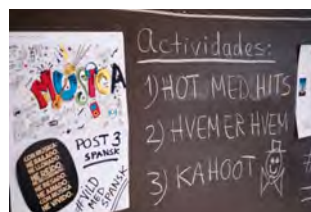 MUSICA
POST 3
SPANSK
#VILD
MED
SPANSK
Actividades:
1) HOT MED HITS
2) HVEM ER HVEM
3) KAHOOT